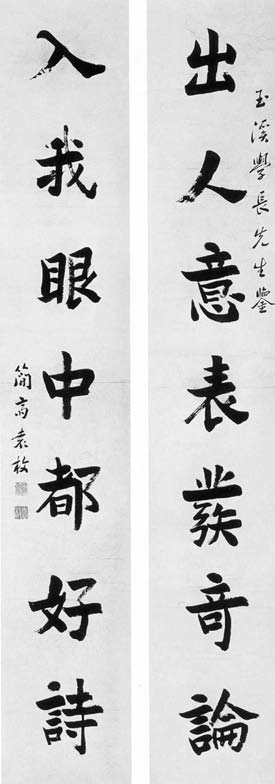 玉溪學長先生鑒
出人意表發奇論
入我眼中都好詩
簡齋袁枚